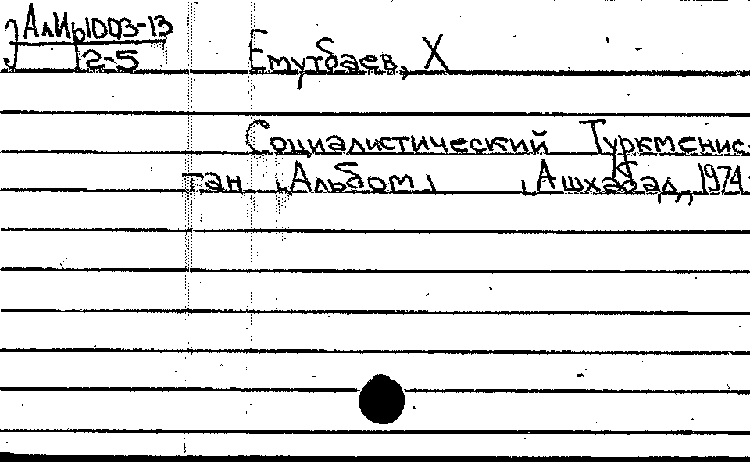 АлИр1003-13
2-5
Емутбаев, Х
Социалистический Туркменис-
тан [Альбом] [Ашхабад,, 1974.